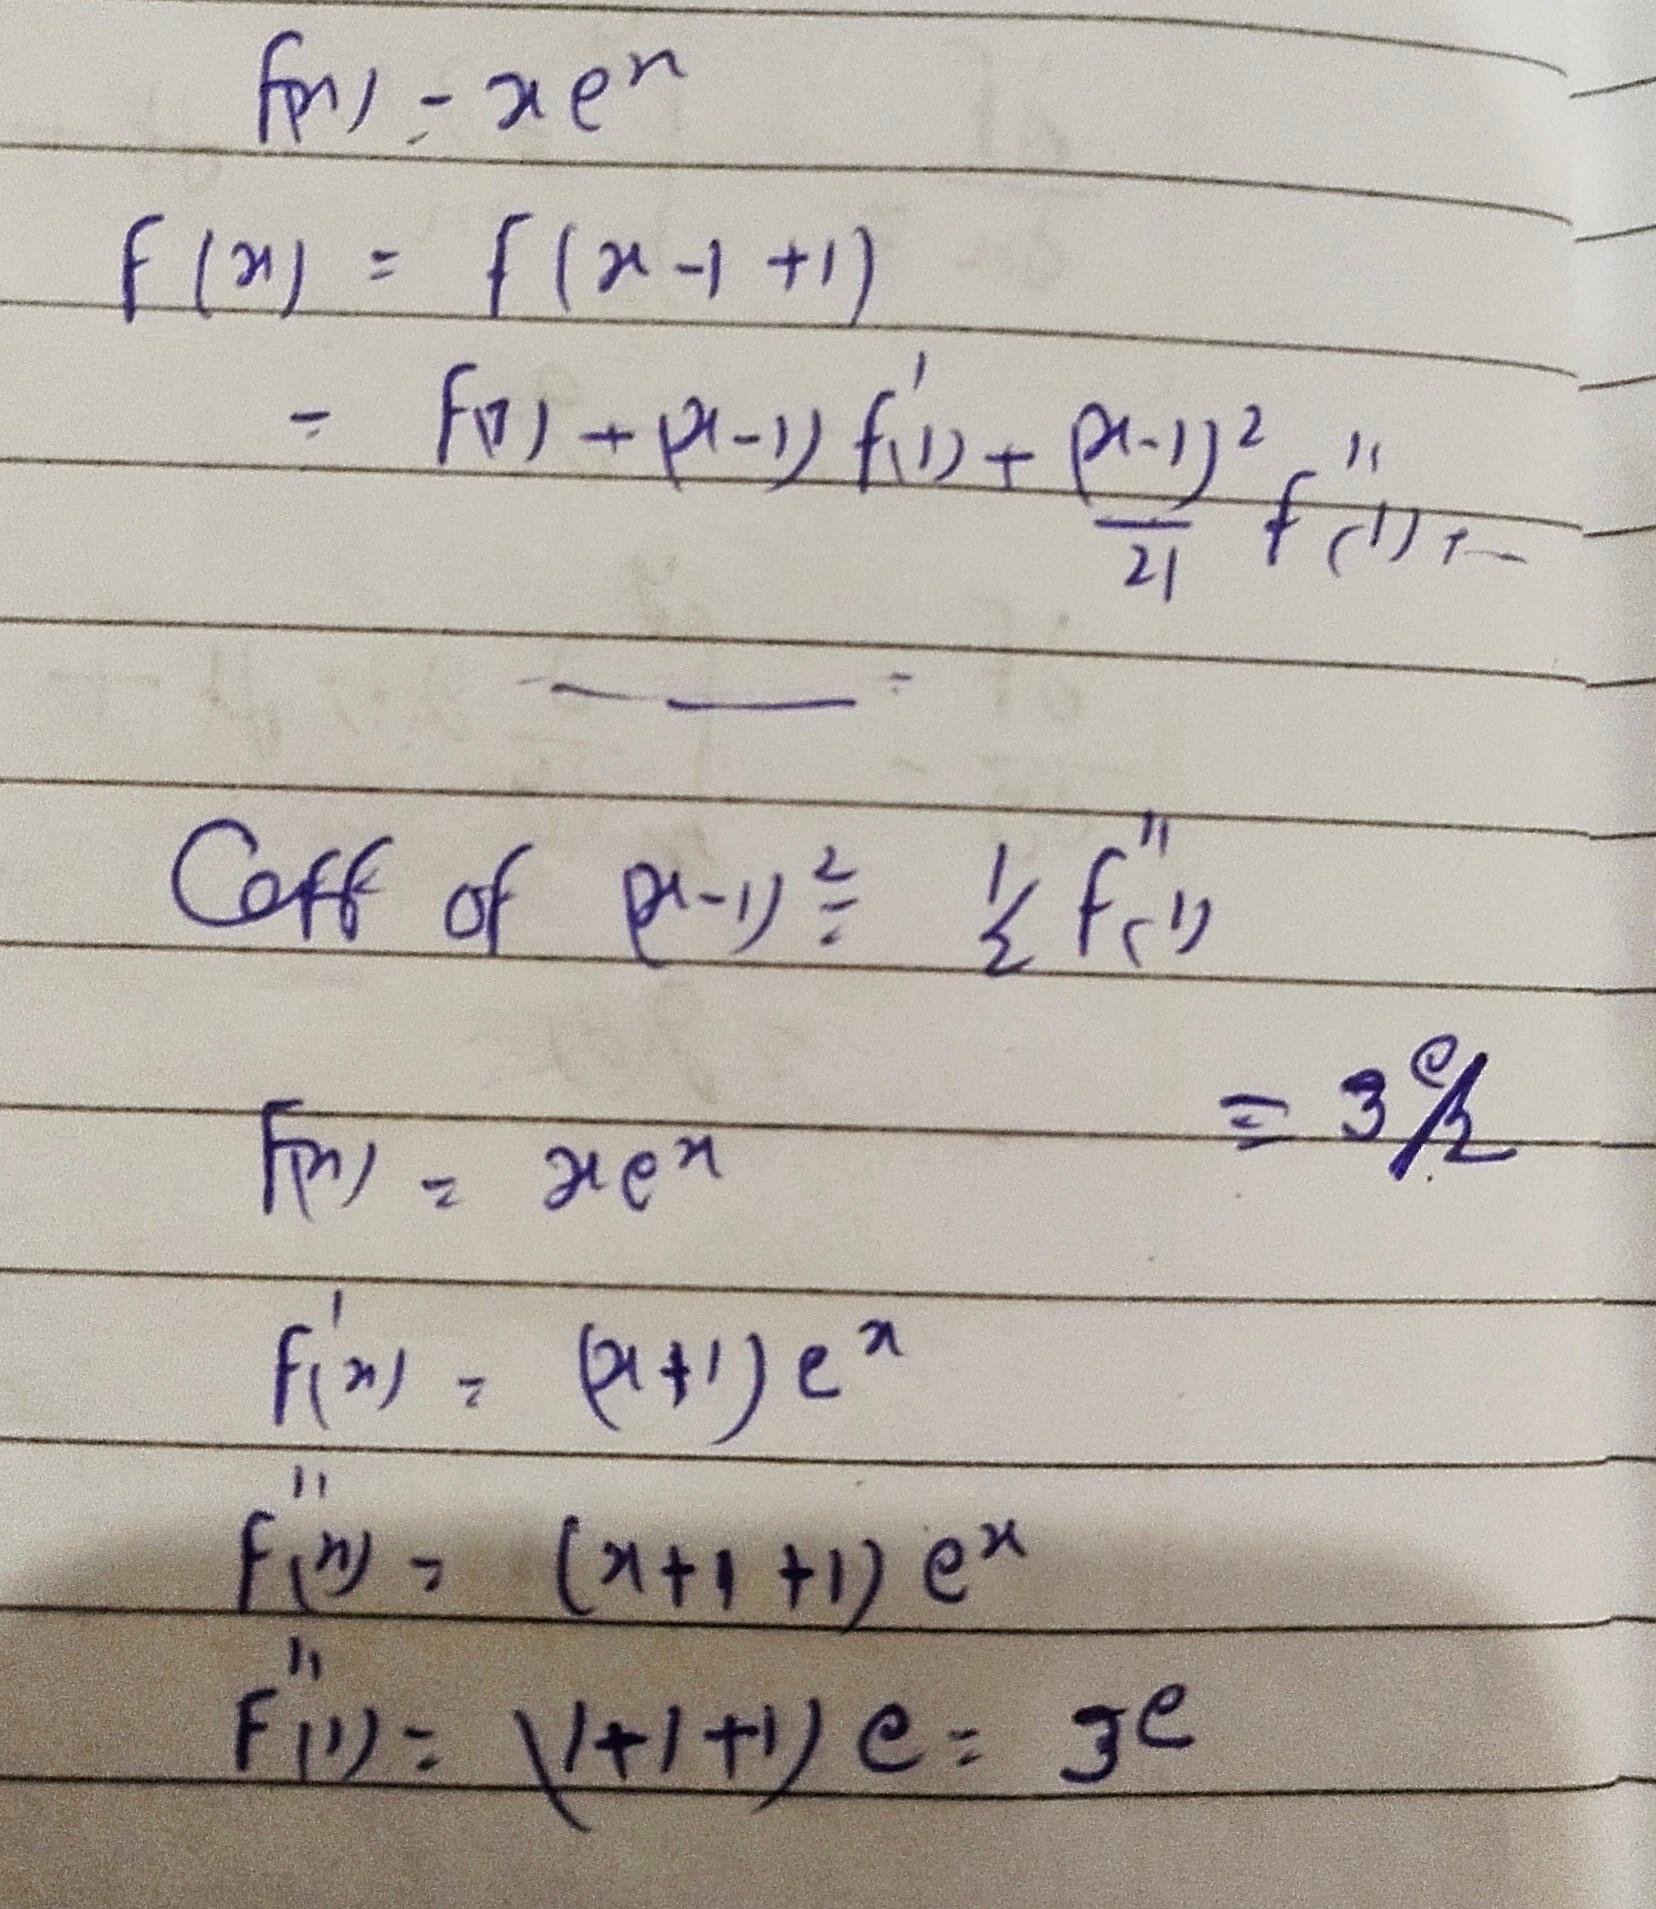 f(x) = xe^x
f(x) = f(x-1+1)
= f(1) + (x-1) f'(1) + (x-1)^2/2! f''(1) + --
Coff of (x-1)^2 = 1/2 f''(1)
= 3e/2
f(x) = xe^x
f'(x) = (x+1)e^x
f''(x) = (x+1+1)e^x
f''(1) = (1+1+1)e = 3e